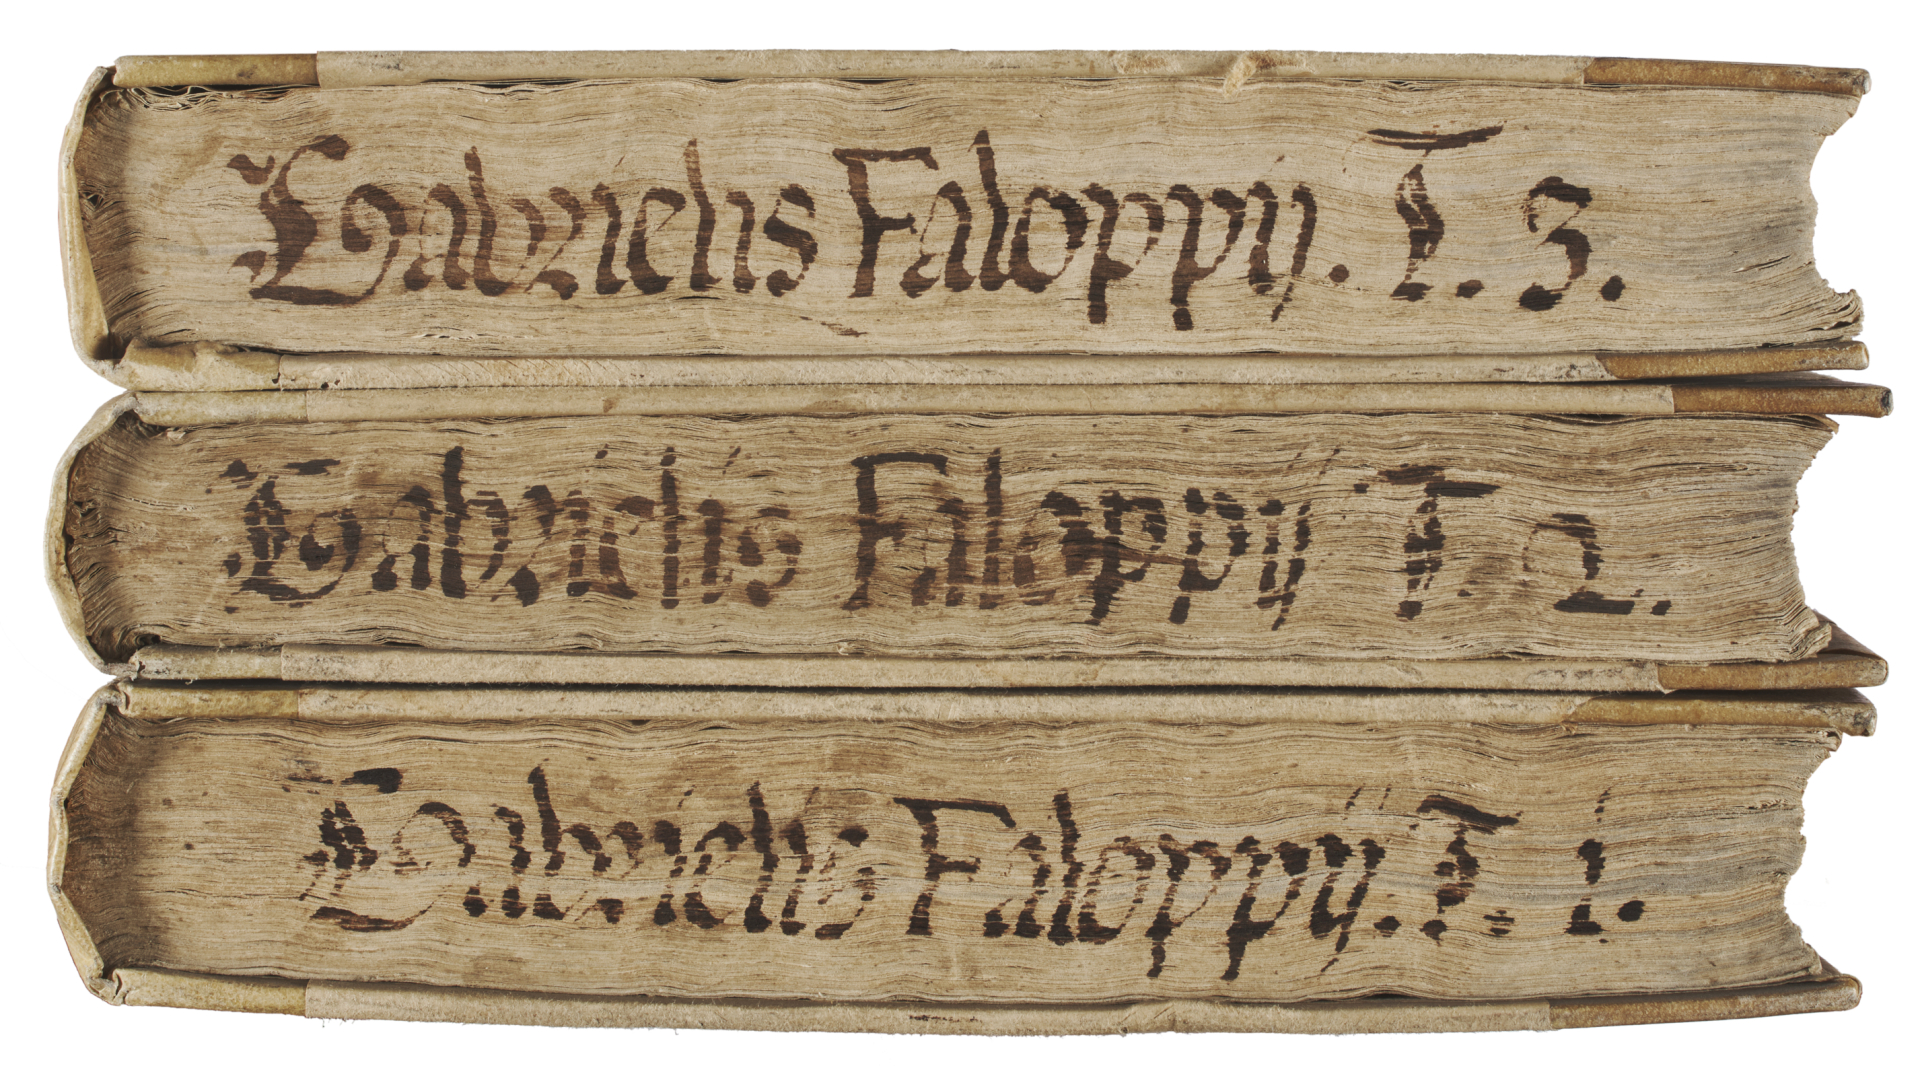 Gabrielis Faloppij. T. 3.
Gabrielis Faloppij T. 2.
Gabrielis Faloppij. T. i.